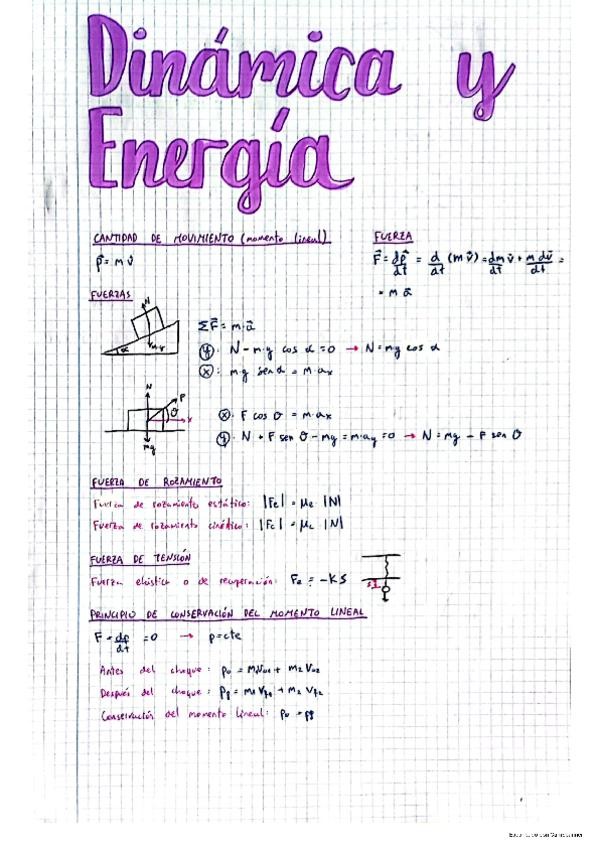 Dinámica y
Energía
CANTIDAD DE MOVIMIENTO (momento lineal)
p⃗ = m v⃗
FUERZA
F⃗ = dp⃗/dt = d/dt (m v⃗) = dm/dt v⃗ + m dv⃗/dt =
= m a⃗
FUERZAS
N
α
ΣF⃗ = m·a⃗
y: N - m·g cos α = 0 → N = mg cos α
x: m·g sen α = m·ax
N
F
θ
x
mg
x: F cos θ = m·ax
y: N + F sen θ - mg = m·ay = 0 → N = mg - F sen θ
FUERZA DE ROZAMIENTO
Fuerza de rozamiento estático: |Fe| = μe |N|
Fuerza de rozamiento cinético: |Fc| = μc |N|
FUERZA DE TENSIÓN
Fuerza elástica o de recuperación: Fe = -KS
PRINCIPIO DE CONSERVACIÓN DEL MOMENTO LINEAL
F = dp/dt = 0 → p = cte
Antes del choque: p0 = m1v01 + m2 v02
Después del choque: pf = m1 vf1 + m2 vf2
Conservación del momento lineal: p0 = pf